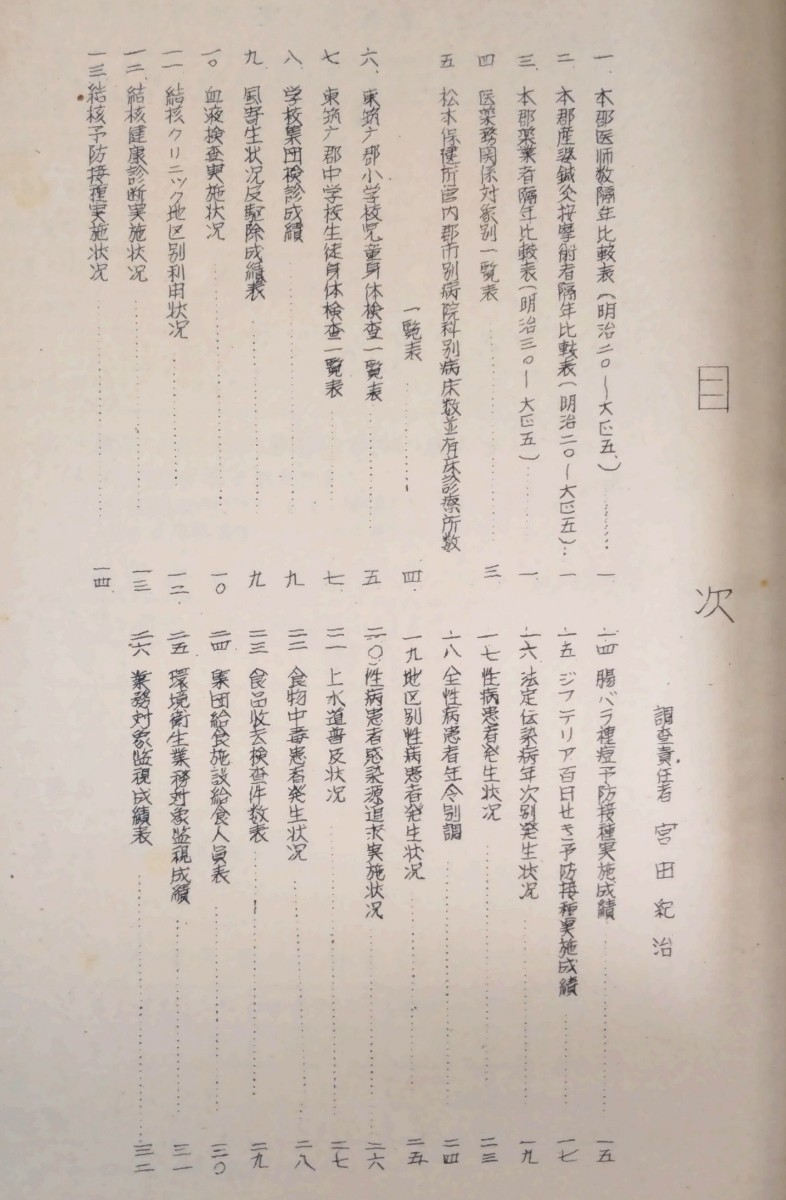 目次
調査責任者 宮田紀治
一、本郡医師数隔年比較表(明治二〇~大正五、)……… 一
二、本郡産婆鍼灸按摩射者隔年比較表(明治二〇~大正五)… 一
三、本郡薬業者隔年比較表(明治三〇~大正五)……… 一
四 医薬務関係対象別一覧表……… 三
五 松本保健所管内郡市別病院科別病床数並有床診療所数
一覧表……… 四
六、東筑广郡小学校児童身体検査一覧表……… 五
七 東筑广郡中学校生徒身体検査一覧表……… 七
八、学校集団検診成績……… 九
九 寄生状况反駆除成績表……… 九
一〇 血液検査実施状况……… 一〇
一一 結核クリニック地区別利用状况……… 一二
一二 結核健康診断実施状况……… 一三
一三 結核予防接種実施状况……… 一四
一四 腸バラ種痘予防接種実施成績……… 一五
一五 ジフテリア百日せき予防接種実施成績……… 一七
一六 法定伝染病年次別発生状况……… 一九
一七 性病患者発生状况……… 二三
一八 全性病患者年令別調……… 二四
一九 地区別性病患者発生状况……… 二五
二〇)性病患者感染源追求実施状况……… 二六
二一 上水道普及状况……… 二七
二二 食物中毒患者発生状况……… 二八
二三 食品收去検査件数表……… 二九
二四 集団給食施設給食人員表……… 三〇
二五 環境衛生業務対象監視成績……… 三一
二六 業務対象監視成績表……… 三二